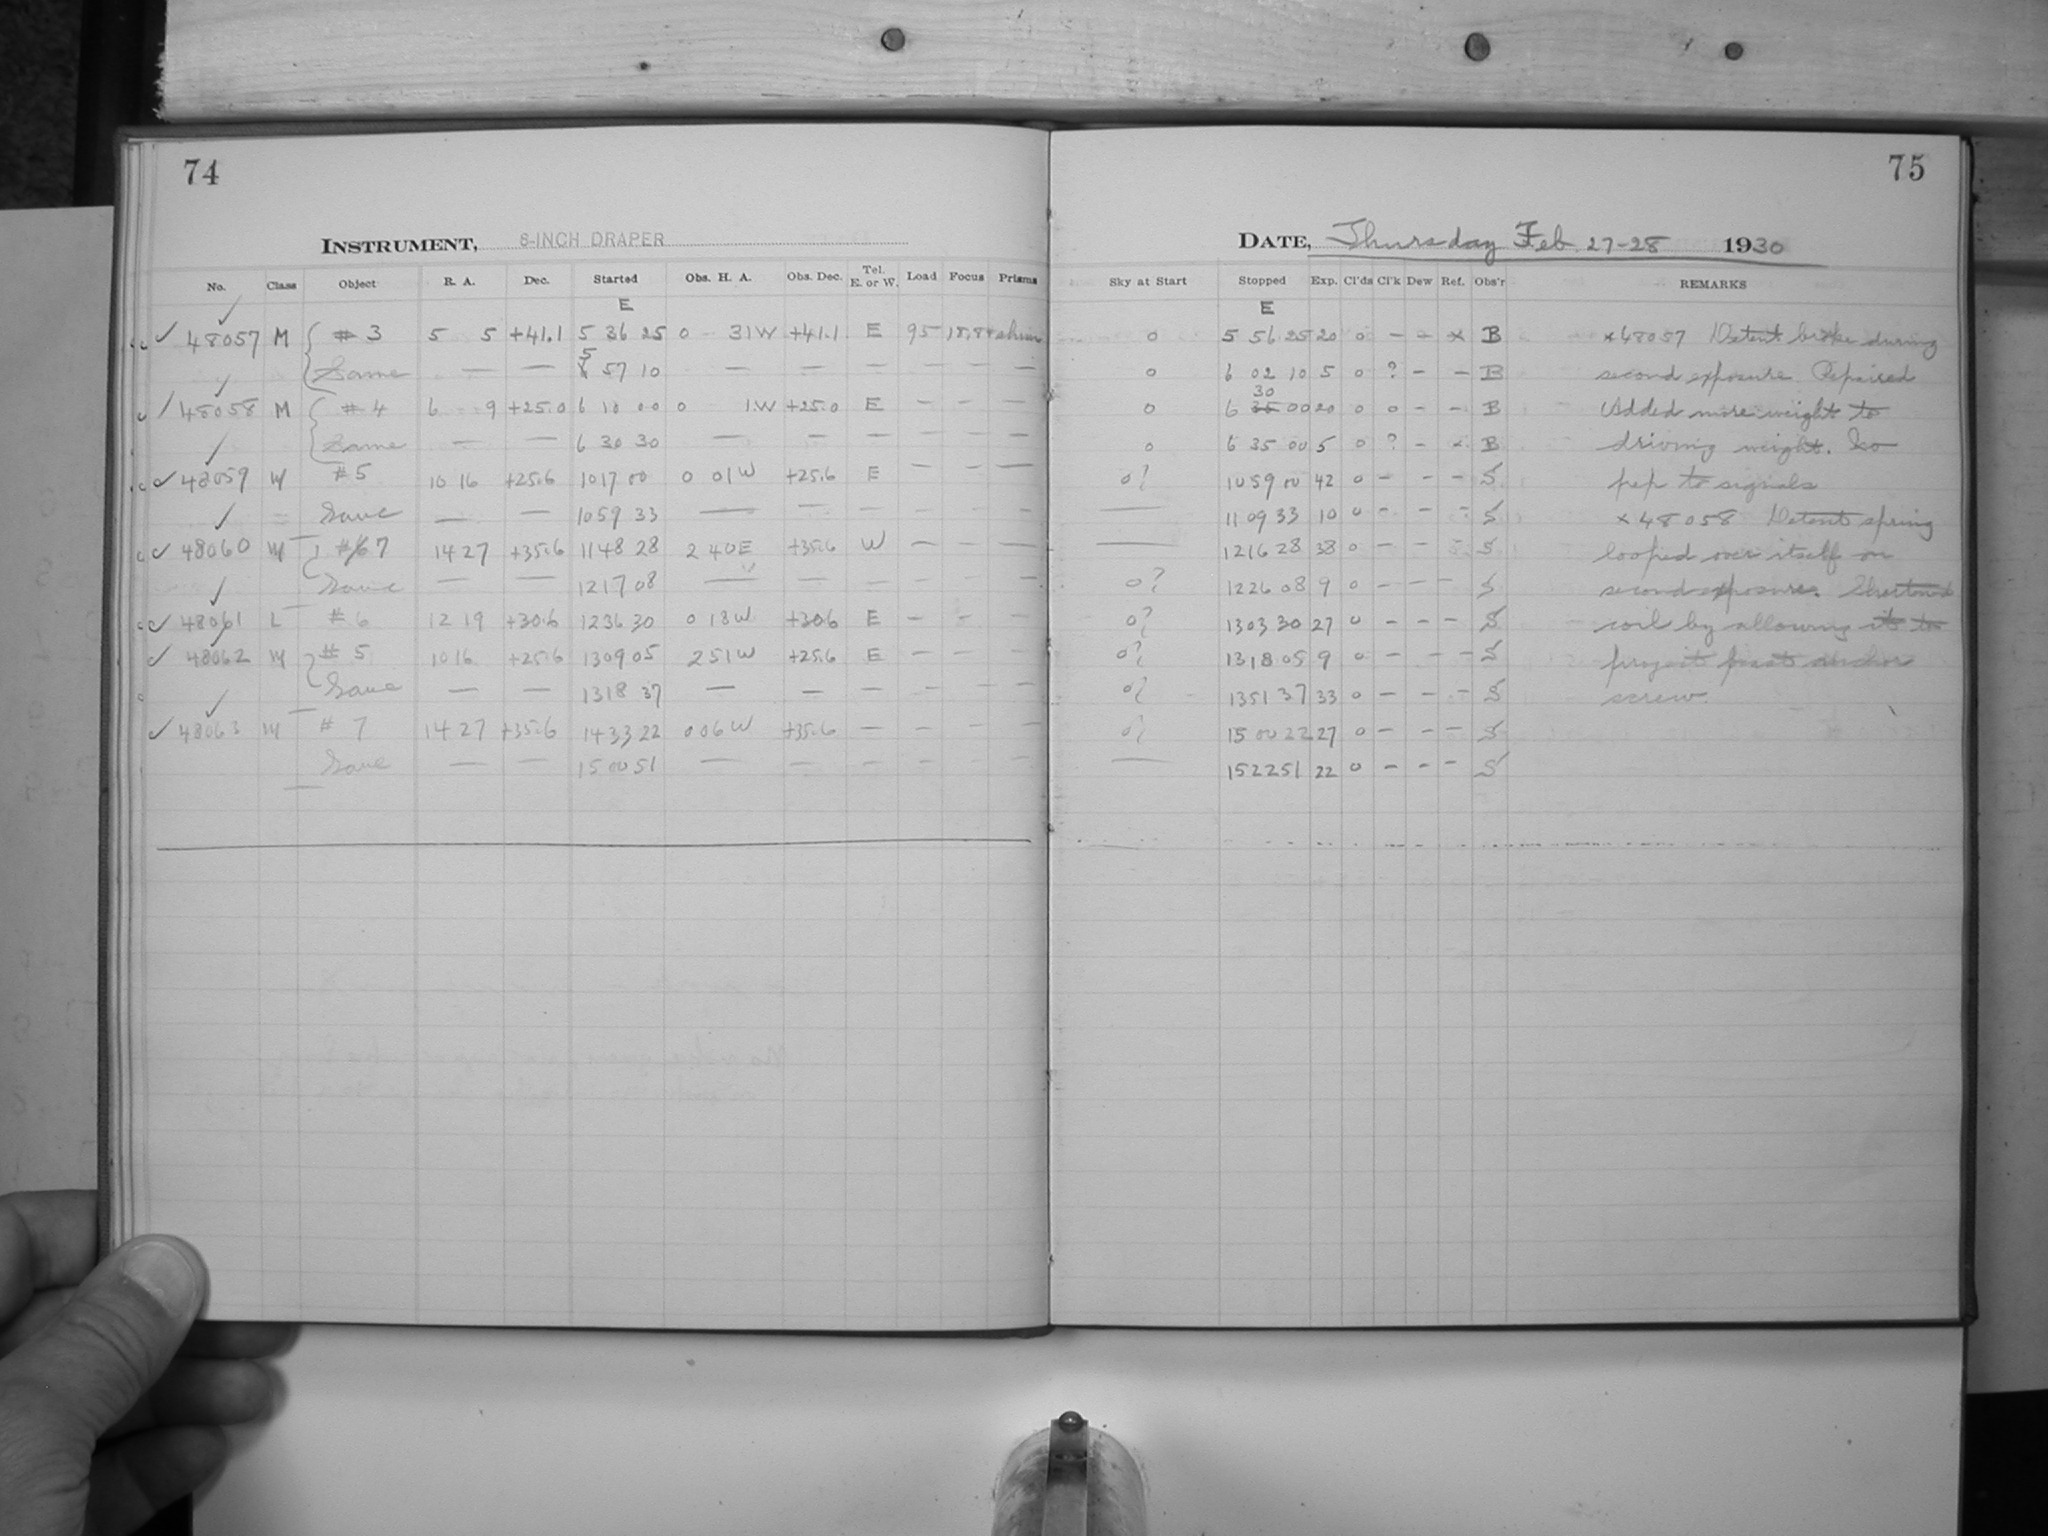 74
INSTRUMENT, 8-INCH DRAPER
No. Class Object R. A. Dec. Started Obs. H. A. Obs. Dec. Tel. E. or W. Load Focus Prisms
E
✓ 48057 M # 3 5 5 +41.1 5 36 25 0 31W +41.1 E 95
Same — — 5 57 10 — — — — — —
48058 M # 4 6 9 +25.0 6 10 00 0 1W +25.0 E — — —
Same — — 6 30 30 — — — — — —
✓ 48059 M # 5 10 16 +25.6 10 17 00 0 01W +25.6 E — — —
Same — — 10 59 33 — — — — — —
✓ 48060 M # 7 14 27 +35.6 11 48 28 2 40E +35.6 W — — —
Same — — 12 17 08 — — — — — —
✓ 48061 L # 6 12 19 +30.6 12 36 30 0 18W +30.6 E — — —
✓ 48062 M # 5 10 16 +25.6 13 09 05 2 51W +25.6 E — — —
Same — — 13 18 37 — — — — — —
✓ 48063 M # 7 14 27 +35.6 14 33 22 0 06W +35.6 — — — —
Same — — 15 00 51 — — — — — —
75
DATE, Thursday Feb 27-28 1930
Sky at Start Stopped Exp. Cl'ds Cl'k Dew Ref. Obs'r REMARKS
E
0 5 56 25 20 0 — — x B x 48057 Detent broke during
0 6 02 10 5 0 ? — — B second exposure. Repaired
0 6 30 00 20 0 0 — — B Added more weight to
0 6 35 00 5 0 ? — x B driving weight. No
0? 10 59 00 42 0 — — — S pep to signals
— 11 09 33 10 0 — — — S x 48058 Detent spring
— 12 16 28 38 0 — — — S looped over itself on
0? 12 26 08 9 0 — — — S second exposure. Shortened
0? 13 03 30 27 0 — — — S coil by allowing it to
0? 13 18 05 9 0 — — — S project past anchor
0? 13 51 37 33 0 — — — S screw.
0? 15 00 22 27 0 — — — S
— 15 22 51 22 0 — — — S